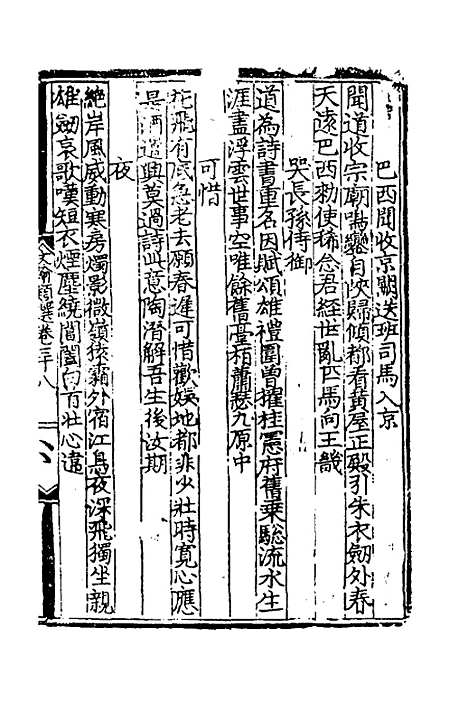 巴西聞收京闕送班司馬入京
聞道收宗廟鳴鑾自陜歸傾都看黃屋正殿引朱衣劒外春
天遠巴西勑使稀念君經世亂匹馬向王畿
哭長孫侍御
道為詩書重名因賦頌雄禮闈曾擢桂憲府舊乗驄流水生
涯盡浮雲世事空唯餘舊臺栢蕭瑟九原中
可惜
花飛有底急老去願春遲可惜歡娛地都非少壯時寛心應
是酒遣興莫過詩此意陶潛解吾生後汝期
夜
絶岸風威動寒房燭影微嶺猿霜外宿江鳥夜深飛獨坐親
雄劒哀歌嘆短衣煙塵繞閶闔白首壯心違
卷三十八